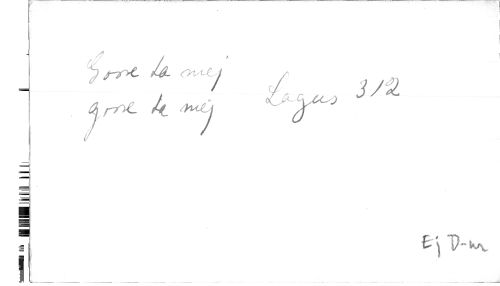 Goose ta mej
goose ta mej
Lagus 312
Ej D-nr